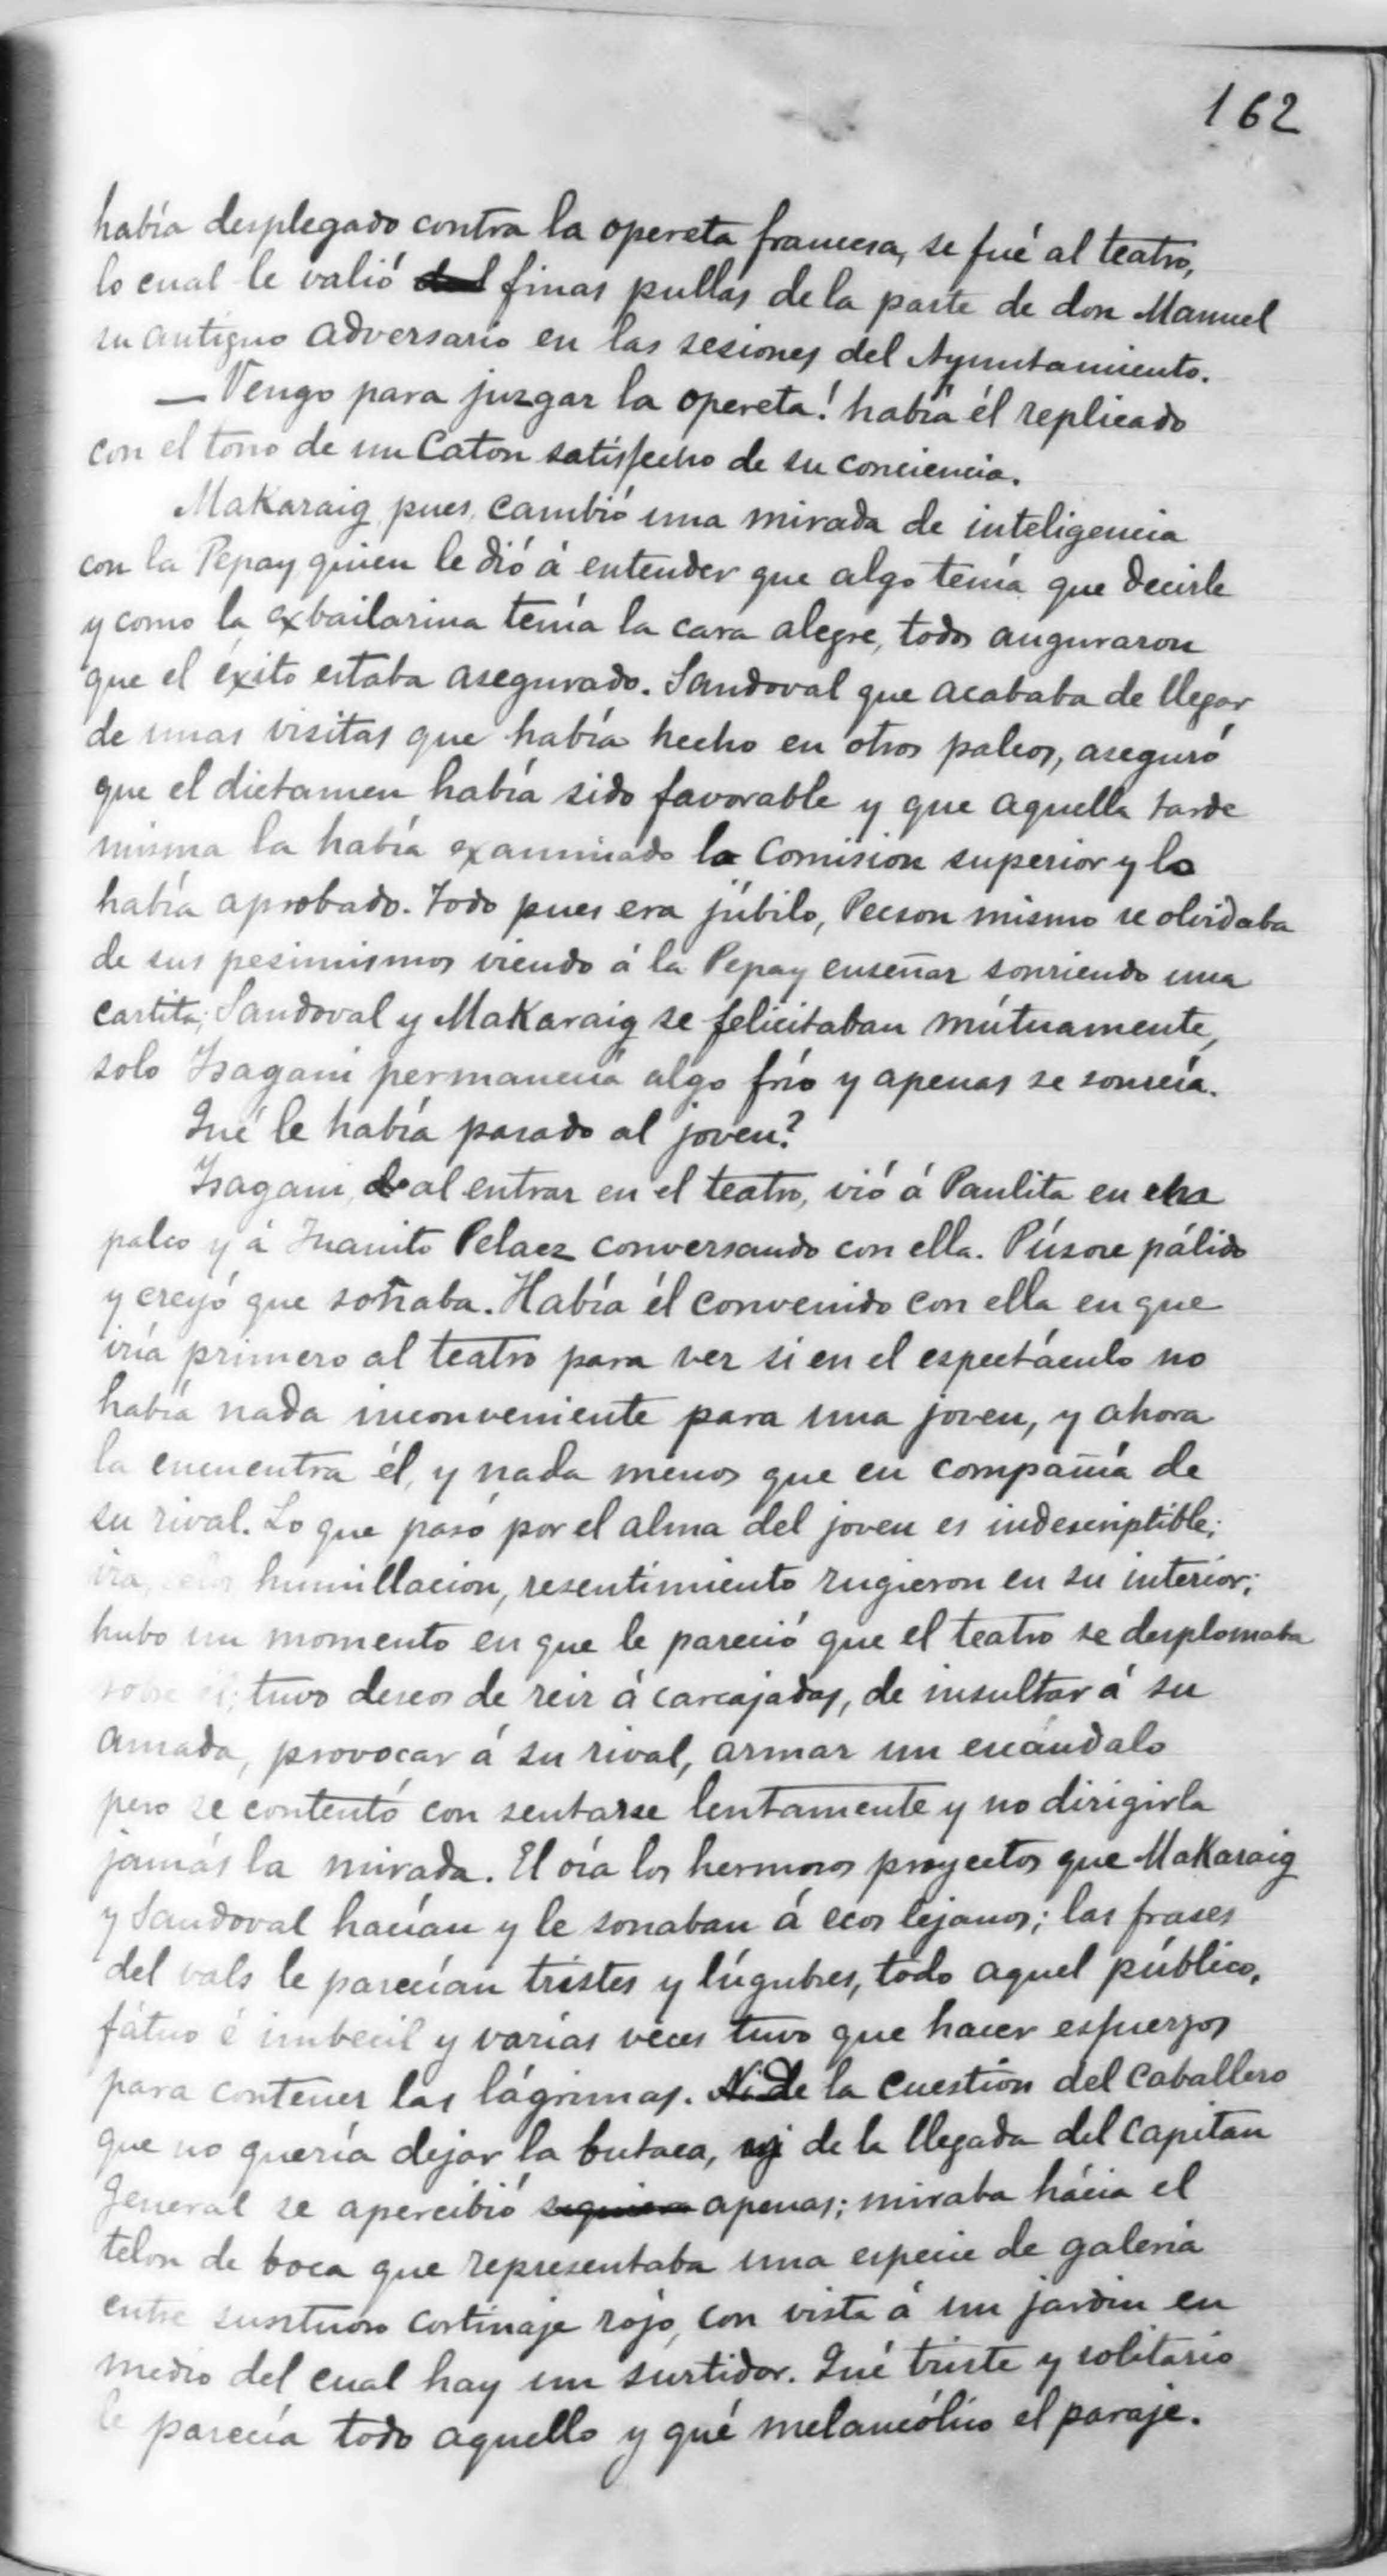 162
había desplegado contra la opereta francesa, se fué al teatro,
lo cual le valió finas pullas de la parte de don Manuel
su antiguo adversario en las sesiones del Ayuntamiento.
— Vengo para juzgar la opereta! había él replicado
con el tono de un Caton satisfecho de su conciencia.
Makaraig pues, cambió una mirada de inteligencia
con la Pepay quien le dió á entender que algo tenía que decirle
y como la exbailarina tenía la cara alegre, todos auguraron
que el éxito estaba asegurado. Sandoval que acababa de llegar
de unas visitas que había hecho en otros palcos, aseguró
que el dictamen había sido favorable y que aquella tarde
misma la había examinado la Comision superior y lo
había aprobado. Todo pues era júbilo, Pecson mismo se olvidaba
de sus pesimismos viendo á la Pepay enseñar sonriendo una
cartita; Sandoval y Makaraig se felicitaban mútuamente,
solo Isagani permanecía algo frío y apenas se sonreía.
Qué le había pasado al joven?
Isagani, al entrar en el teatro, vió á Paulita en
palco y á Juanito Pelaez conversando con ella. Púsose pálido
y creyó que soñaba. Había él convenido con ella en que
iría primero al teatro para ver si en el espectáculo no
había nada inconveniente para una joven, y ahora
la encuentra él, y nada menos que en compañía de
su rival. Lo que pasó por el alma del joven es indescriptible;
ira, celos humillacion, resentimiento rugieron en su interior;
hubo un momento en que le pareció que el teatro se desplomaba
sobre él; tuvo deseos de reir á carcajadas, de insultar á su
amada, provocar á su rival, armar un escándalo
pero se contentó con sentarse lentamente y no dirigirla
jamás la mirada. El oía los hermosos proyectos que Makaraig
y Sandoval hacían y le sonaban á ecos lejanos; las frases
del vals le parecían tristes y lúgubres, todo aquel público,
fátuo é imbecil y varias veces tuvo que hacer esfuerzos
para contener las lágrimas. De la cuestión del caballero
que no quería dejar la butaca, de la llegada del Capitan
General se apercibió apenas; miraba hácia el
telon de boca que representaba una especie de galería
entre suntuoso cortinaje rojo, con vista á un jardin en
medio del cual hay un surtidor. Qué triste y solitario
le parecía todo aquello y qué melancólico el paraje.